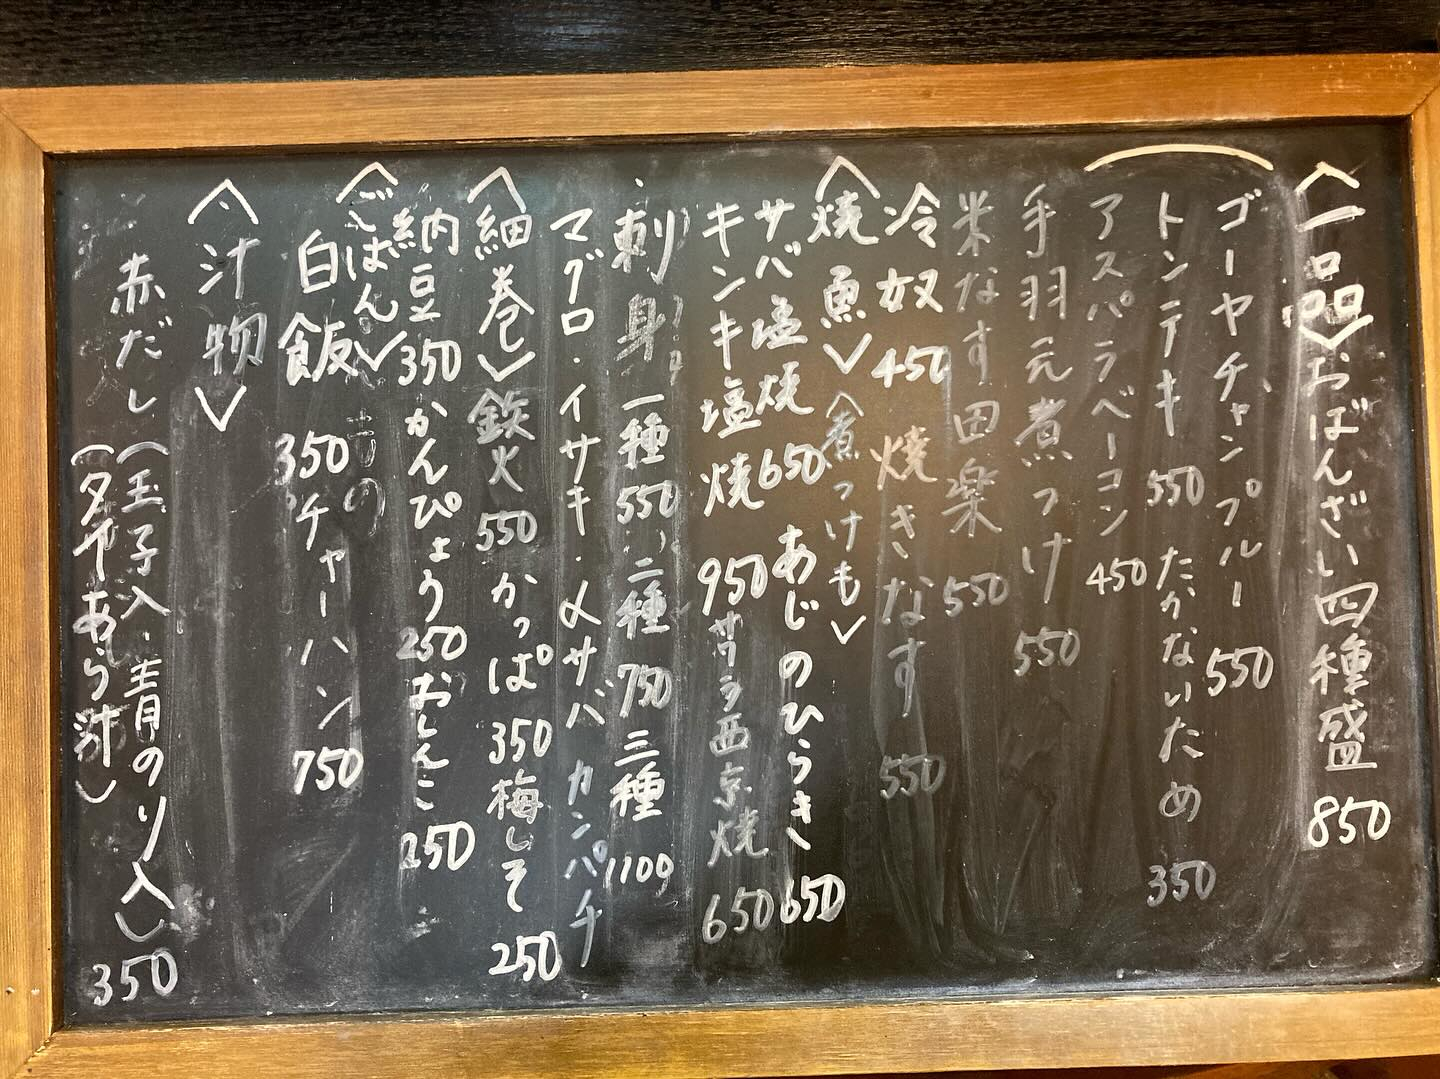 〈一品〉おばんざい四種盛 850
ゴーヤチャンプルー 550
トンテキ 550 たかないため 350
アスパラベーコン 450
手羽元煮つけ 550
米なす田楽 550
冷奴 450 焼きなす 550
〈焼魚〉〈煮つけも〉
サバ塩焼 650 あじのひらき 650
キンキ塩焼 950 サワラ西京焼 650
刺身 一種 550、二種 750 三種 1100
マグロ・イサキ・〆サバ カンパチ
〈細巻〉鉄火 550 かっぱ 350 梅しそ 250
納豆 350 かんぴょう 250 おしんこ 250
〈ごはん〉
白飯 350 チャーハン 750
〈汁物〉
赤だし(玉子入・青のり入) 350
(タヤあら汁)